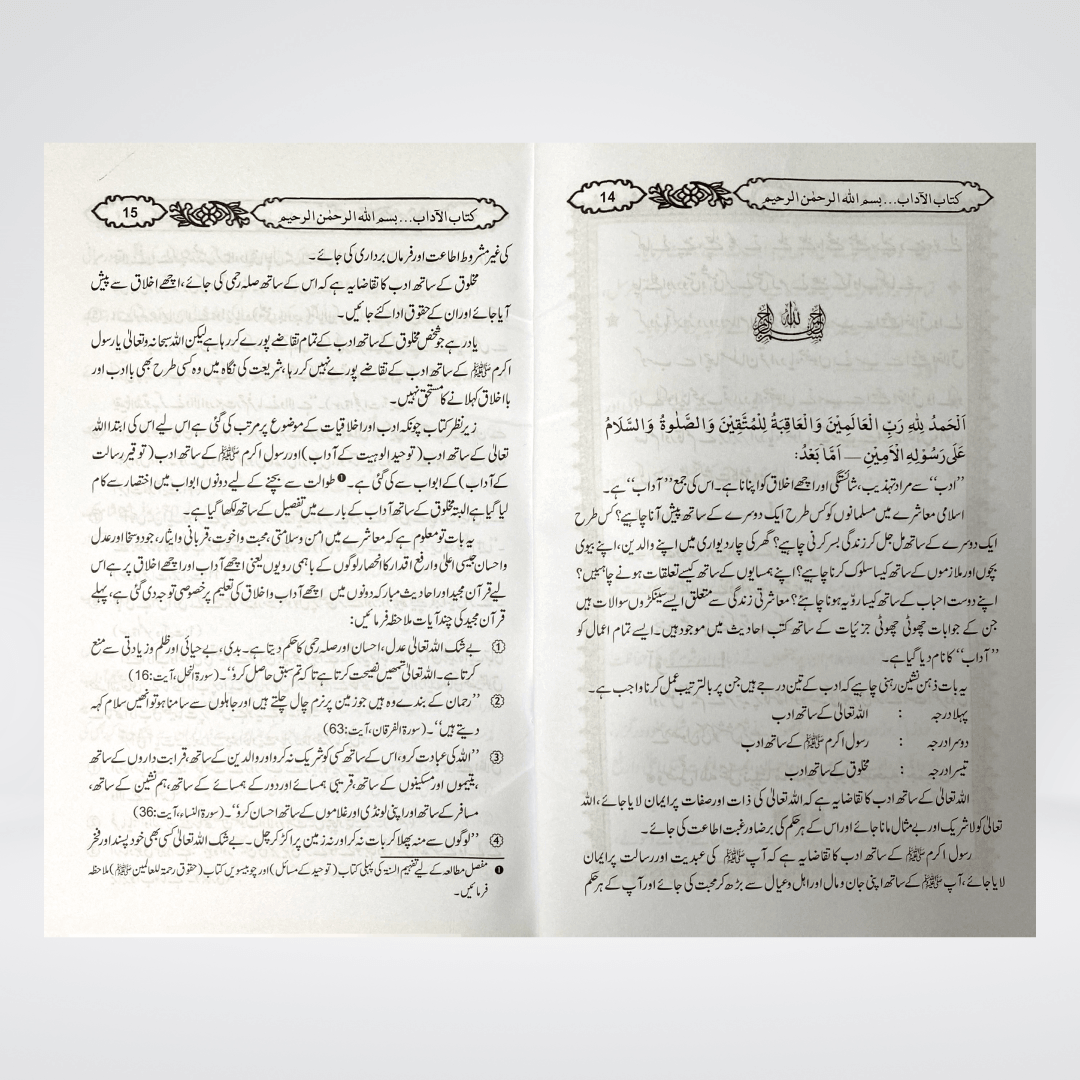 کتاب الآداب...بسم اللہ الرحمٰن الرحیم
14
بسم اللہ الرحمن الرحیم
اَلْحَمْدُ لِلّٰهِ رَبِّ الْعَالَمِيْنَ وَالْعَاقِبَةُ لِلْمُتَّقِيْنَ وَالصَّلٰوةُ وَالسَّلَامُ
عَلٰی رَسُوْلِهِ الْاَمِيْنِ — اَمَّا بَعْدُ:
’’ادب‘‘ سے مراد تہذیب، شائستگی اور اچھے اخلاق کو اپنانا ہے۔ اس کی جمع ’’آداب‘‘ ہے۔
اسلامی معاشرے میں مسلمانوں کو کس طرح ایک دوسرے کے ساتھ پیش آنا چاہیے؟ کس طرح
ایک دوسرے کے ساتھ مل جل کر زندگی بسر کرنی چاہیے؟ گھر کی چار دیواری میں اپنے والدین، اپنے بیوی
بچوں اور ملازموں کے ساتھ کیسا سلوک کرنا چاہیے؟ اپنے ہمسایوں کے ساتھ کیسے تعلقات ہونے چاہئیں؟
اپنے دوست احباب کے ساتھ کیسا رویّہ ہونا چاہئے؟ معاشرتی زندگی سے متعلق ایسے سینکڑوں سوالات ہیں
جن کے جوابات چھوٹی چھوٹی جزئیات کے ساتھ کتب احادیث میں موجود ہیں۔ ایسے تمام اعمال کو
’’آداب‘‘ کا نام دیا گیا ہے۔
یہ بات ذہن نشین رہنی چاہیے کہ ادب کے تین درجے ہیں جن پر بالترتیب عمل کرنا واجب ہے۔
پہلا درجہ : اللہ تعالیٰ کے ساتھ ادب
دوسرا درجہ : رسول اکرم ﷺ کے ساتھ ادب
تیسرا درجہ : مخلوق کے ساتھ ادب
اللہ تعالیٰ کے ساتھ ادب کا تقاضا یہ ہے کہ اللہ تعالیٰ کی ذات اور صفات پر ایمان لایا جائے، اللہ
تعالیٰ کو لاشریک اور بے مثال مانا جائے اور اس کے ہر حکم کی برضا ورغبت اطاعت کی جائے۔
رسول اکرم ﷺ کے ساتھ ادب کا تقاضا یہ ہے کہ آپ ﷺ کی عبدیت اور رسالت پر ایمان
لایا جائے، آپ ﷺ کے ساتھ اپنی جان و مال اور اہل و عیال سے بڑھ کر محبت کی جائے اور آپ کے ہر حکم
کتاب الآداب...بسم اللہ الرحمٰن الرحیم
15
کی غیر مشروط اطاعت اور فرماں برداری کی جائے۔
مخلوق کے ساتھ ادب کا تقاضا یہ ہے کہ اس کے ساتھ صلہ رحمی کی جائے، اچھے اخلاق سے پیش
آیا جائے اور ان کے حقوق ادا کئے جائیں۔
یاد رہے جو شخص مخلوق کے ساتھ ادب کے تمام تقاضے پورے کر رہا ہے لیکن اللہ سبحانہ وتعالیٰ یا رسول
اکرم ﷺ کے ساتھ ادب کے تقاضے پورے نہیں کر رہا، شریعت کی نگاہ میں وہ کسی طرح بھی باادب اور
بااخلاق کہلانے کا مستحق نہیں۔
زیر نظر کتاب چونکہ ادب اور اخلاقیات کے موضوع پر مرتب کی گئی ہے اس لیے اس کی ابتدا اللہ
تعالیٰ کے ساتھ ادب (توحید الوہیت کے آداب) اور رسول اکرم ﷺ کے ساتھ ادب (توقیر رسالت
کے آداب) کے ابواب سے کی گئی ہے۔❶ طوالت سے بچنے کے لیے دونوں ابواب میں اختصار سے کام
لیا گیا ہے البتہ مخلوق کے ساتھ آداب کے بارے میں تفصیل کے ساتھ لکھا گیا ہے۔
یہ بات تو معلوم ہے کہ معاشرے میں امن و سلامتی، محبت و اخوت، قربانی و ایثار، جود و سخا اور عدل
واحسان جیسی اعلیٰ وارفع اقدار کا انحصار لوگوں کے باہمی رویوں یعنی اچھے آداب اور اچھے اخلاق پر ہے اس
لیے قرآن مجید اور احادیث مبارکہ دونوں میں اچھے آداب واخلاق کی تعلیم پر خصوصی توجہ دی گئی ہے، پہلے
قرآن مجید کی چند آیات ملاحظہ فرمائیں:
① بے شک اللہ تعالیٰ عدل، احسان اور صلہ رحمی کا حکم دیتا ہے۔ بدی، بے حیائی اور ظلم وزیادتی سے منع
کرتا ہے۔ اللہ تعالیٰ تمھیں نصیحت کرتا ہے تا کہ تم سبق حاصل کرو‘‘۔ (سورۃ النحل، آیت:16)
② ’’رحمان کے بندے وہ ہیں جو زمین پر نرم چال چلتے ہیں اور جاہلوں سے سامنا ہو تو انھیں سلام کہہ
دیتے ہیں‘‘۔ (سورۃ الفرقان، آیت:63)
③ ’’اللہ کی عبادت کرو، اس کے ساتھ کسی کو شریک نہ کرو اور والدین کے ساتھ، قرابت داروں کے ساتھ
،یتیموں اور مسکینوں کے ساتھ، قریبی ہمسائے اور دور کے ہمسائے کے ساتھ، ہم نشین کے ساتھ،
مسافر کے ساتھ اور اپنی لونڈی اور غلاموں کے ساتھ احسان کرو‘‘۔ (سورۃ النساء، آیت:36)
④ ’’لوگوں سے منہ پھلا کر بات نہ کر اور نہ زمین پر اکڑ کر چل۔ بے شک اللہ تعالیٰ کسی بھی خود پسند اور فخر
❶ مفصل مطالعہ کے لیے تفہیم السنۃ کی پہلی کتاب (توحید کے مسائل) اور چوبیسویں کتاب (حقوق رحمۃ للعالمین ﷺ) ملاحظہ
فرمائیں۔